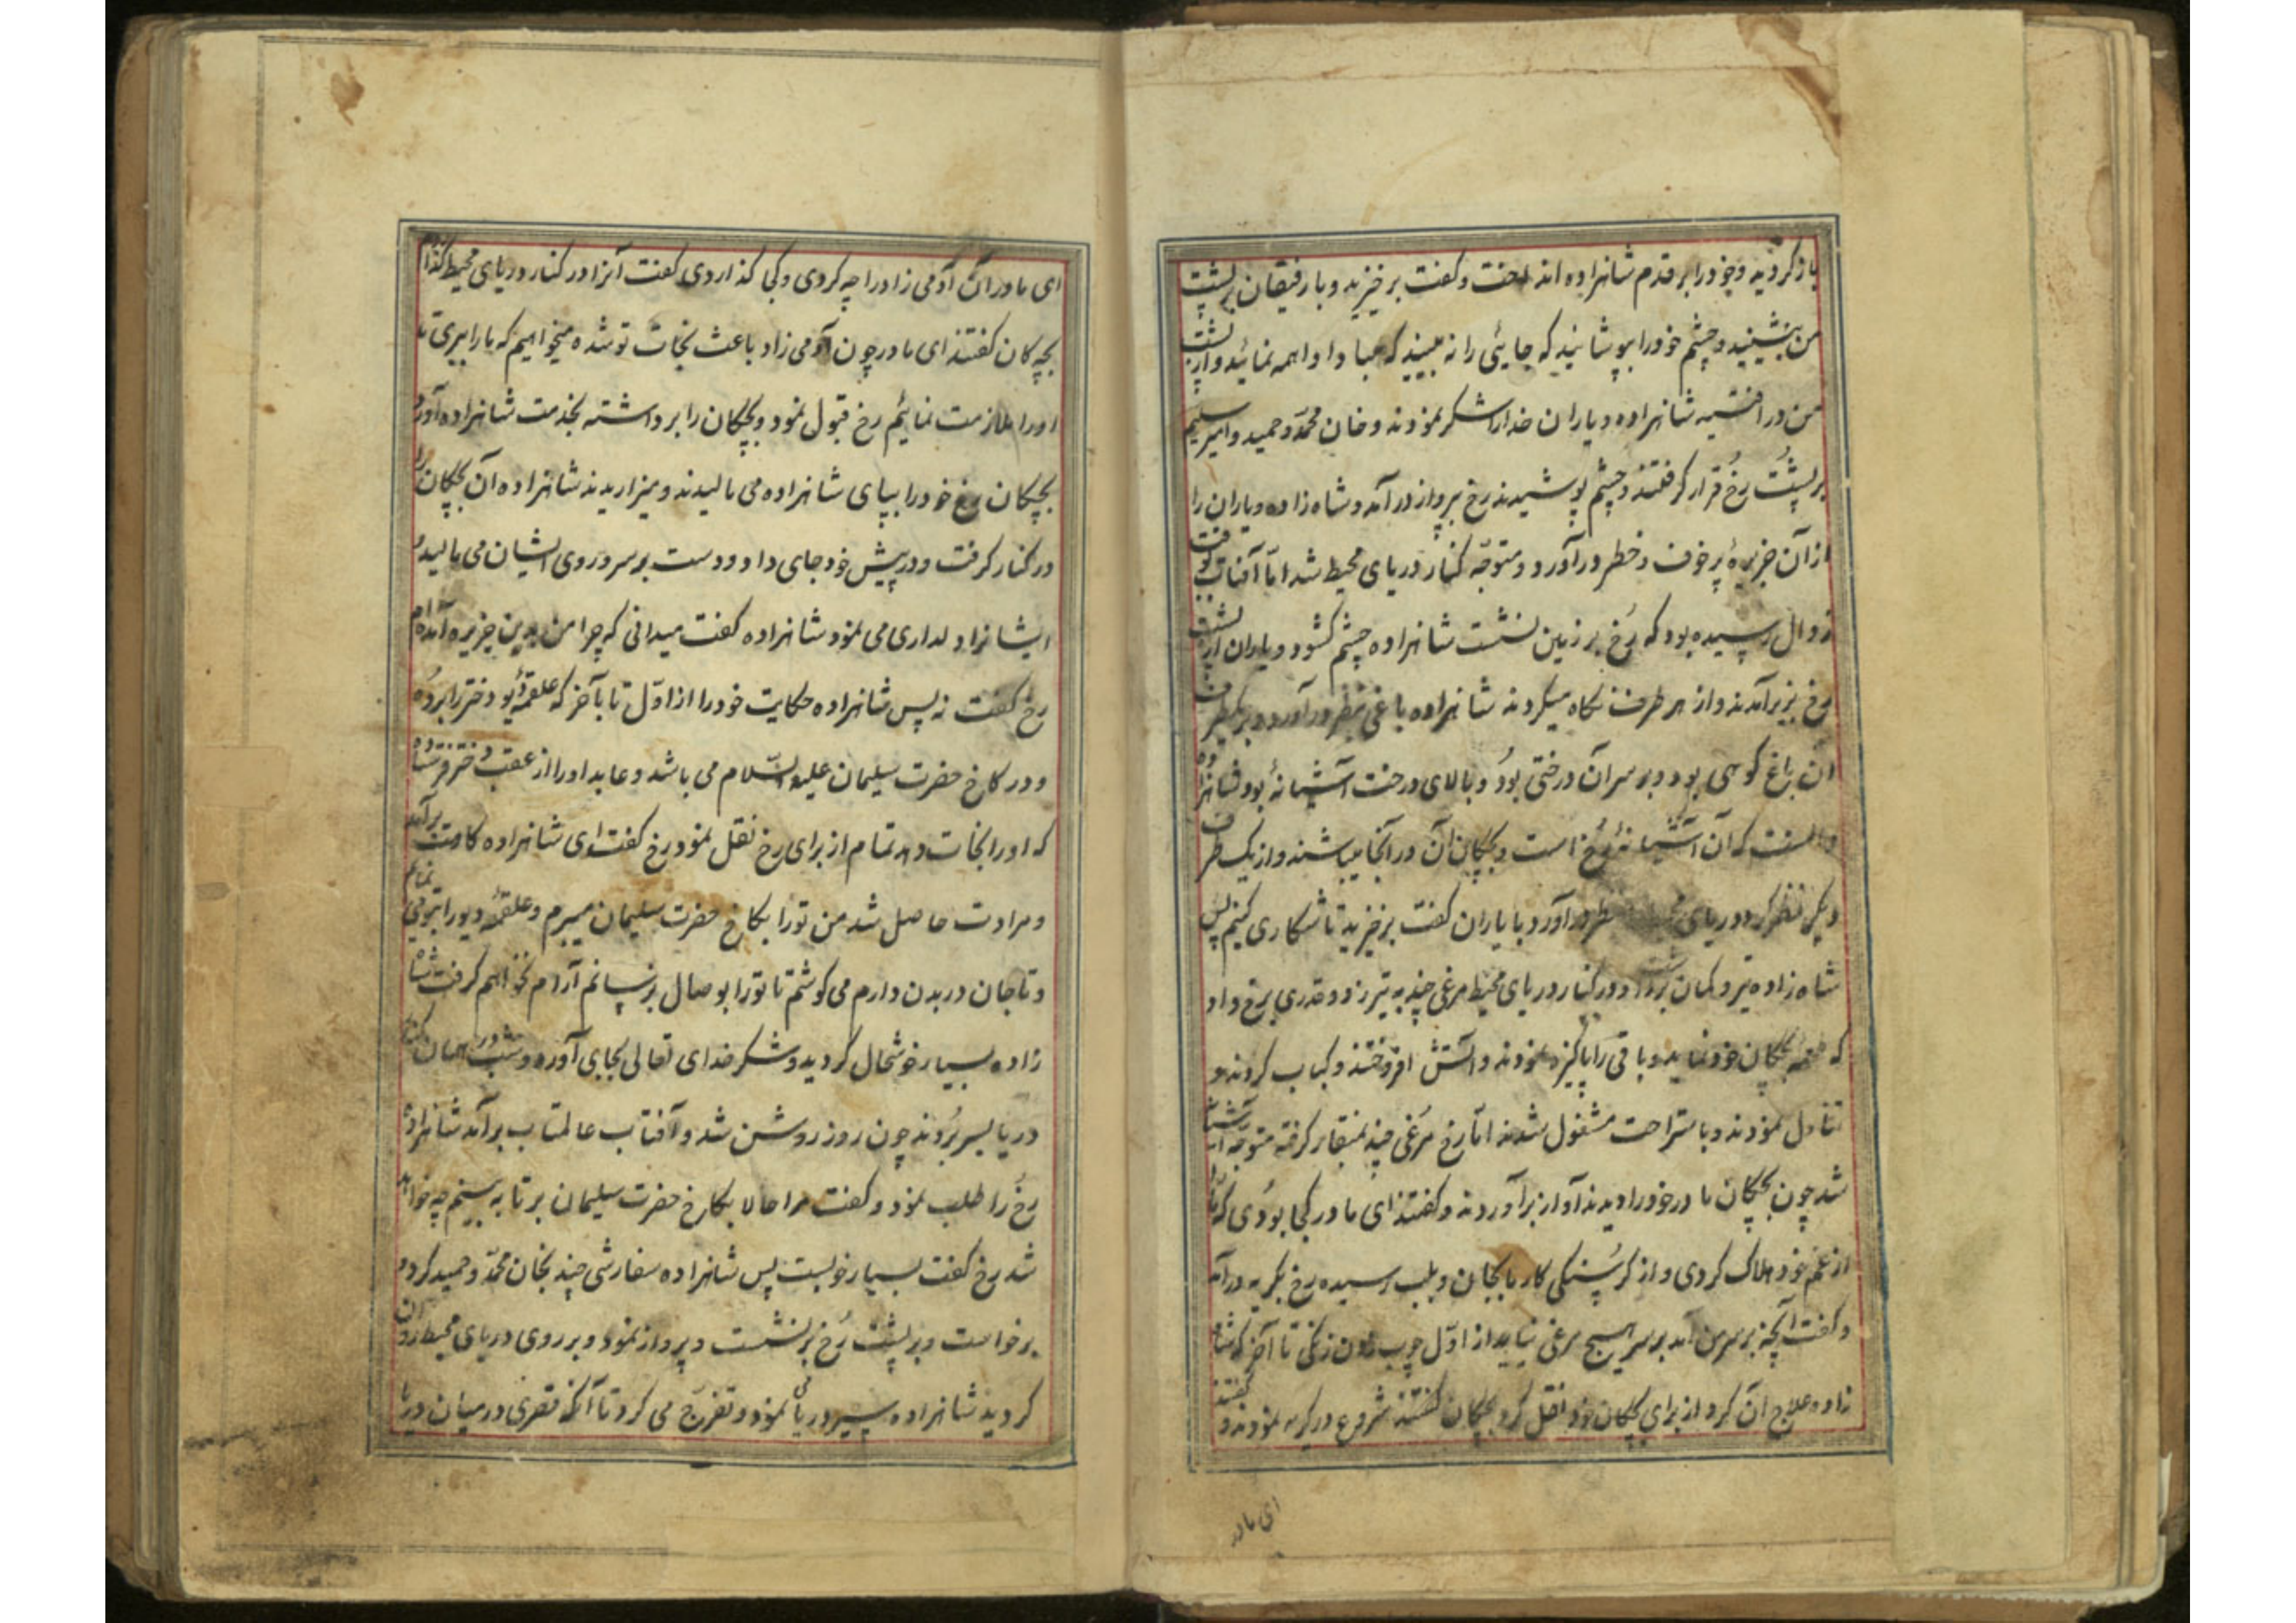 باز کردید و خود را بر قدم شاهزاده انداخت و گفت برخیزید و با رفیقان بر پشت
من بنشینید و چشم خود را بپوشانید که جایی را نه بینید که مبادا واهمه نمائید و از پشت
من در افتید شاهزاده و یاران خدا را شکر نمودند و خان محمد و حمید و امیر سلیم
بر پشت رخ قرار گرفتند و چشم پوشیدند رخ بپرواز در آمد و شاه زاده و یاران را
از آن جزیرهٔ پر خوف و خطر در آورد و متوجه کنار دریای محیط شد اما آفتاب
زوال رسیده بود که رخ بر زمین نشست شاهزاده چشم گشود و یاران از پشت
رخ بزیر آمدند و از هر طرف نگاه میکردند شاهزاده باغی بنظر در آورد و در یکطرف
آن باغ کوهی بود و بر سر آن درختی بود و بالای درخت آشیانهٔ بود شاهزاده
دانست که آن آشیانهٔ رخ است و بچکان آن در آنجا میباشند و از یک طرف
دیگر نظر کرد دریای نظر در آورد با یاران گفت برخیزید تا شکاری کنیم پس
شاه زاده تیر و کمان برداشت و در کنار دریای محیط مرغی چند به تیر زد و قدری برخ داد
که بچکان خود نماید و باقی را پاکیزه نمودند و آتش افروختند و کباب کردند و
تناول نمودند و باستراحت مشغول شدند اما رخ مرغی چند بمنقار گرفته متوجه آشیان
شد چون بچکان مادر خود را دیدند آواز برآوردند و گفتند ای مادر کجا بودی که ما را
از غم خود هلاک کردی و از گرسنگی کار ما بجان و بلب رسیده رخ بگریه در آمد
و گفت آنچه بر سر من آمد بر سر هیچ مرغی نیاید از اول چوب زدن زنگی تا آخر که شاه
زاده علاج آن کرد از برای بچکان خود نقل کرد بچکان شروع در گریه نمودند و گفتند
ای مادر
ای مادر آن آدمی زاد را چه کردی و کجا گذاردی گفت آنرا در کنار دریای محیط گذاردم
بچه کان گفتند ای مادر چون آدمی زاد باعث نجات تو شده میخواهیم که ما را ببری تا
او را ملازمت نمائیم رخ قبول نمود و بچکان را برداشته بخدمت شاهزاده آورد
بچکان رخ خود را بپای شاهزاده می مالیدند و میزاریدند شاهزاده آن بچکان را
در کنار گرفت و در پیش خود جای داد و دست بر سر و روی ایشان می مالید و
ایشانرا دلداری می نمود شاهزاده گفت میدانی که چرا من بدین جزیره آمده‌ام
رخ گفت نه پس شاهزاده حکایت خود را از اول تا بآخر که علقمهٔ دیو دختر را برده
و در کاخ حضرت سلیمان علیه السلام می باشد و عابد او را از عقب دختر فرستاده
که او را نجات دهد تمام از برای رخ نقل نمود رخ گفت ای شاهزاده کامت برآمد
و مرادت حاصل شد من تو را بکاخ حضرت سلیمان میبرم و علقمهٔ دیو را بتو می نمایم
و تا جان در بدن دارم می کوشم تا تو را بوصال برسانم آرام نخواهم گرفت شاه
زاده بسیار خوشحال گردید و شکر خدای تعالی بجای آورد و شب در همان کنار
دریا بسر بردند چون روز روشن شد و آفتاب عالمتاب برآمد شاهزاده
رخ را طلب نمود و گفت مرا حالا بکاخ حضرت سلیمان بر تا به بینم چه خواهد
شد رخ گفت بسیار خوبست پس شاهزاده سفارشی چند بخان محمد و حمید کرد و
برخواست و بر پشت رخ برنشست و پرواز نمود و بر روی دریای محیط روان
گردید شاهزاده سیر دریا می نمود و تفرج می کرد تا آنکه قصری در میان دریا